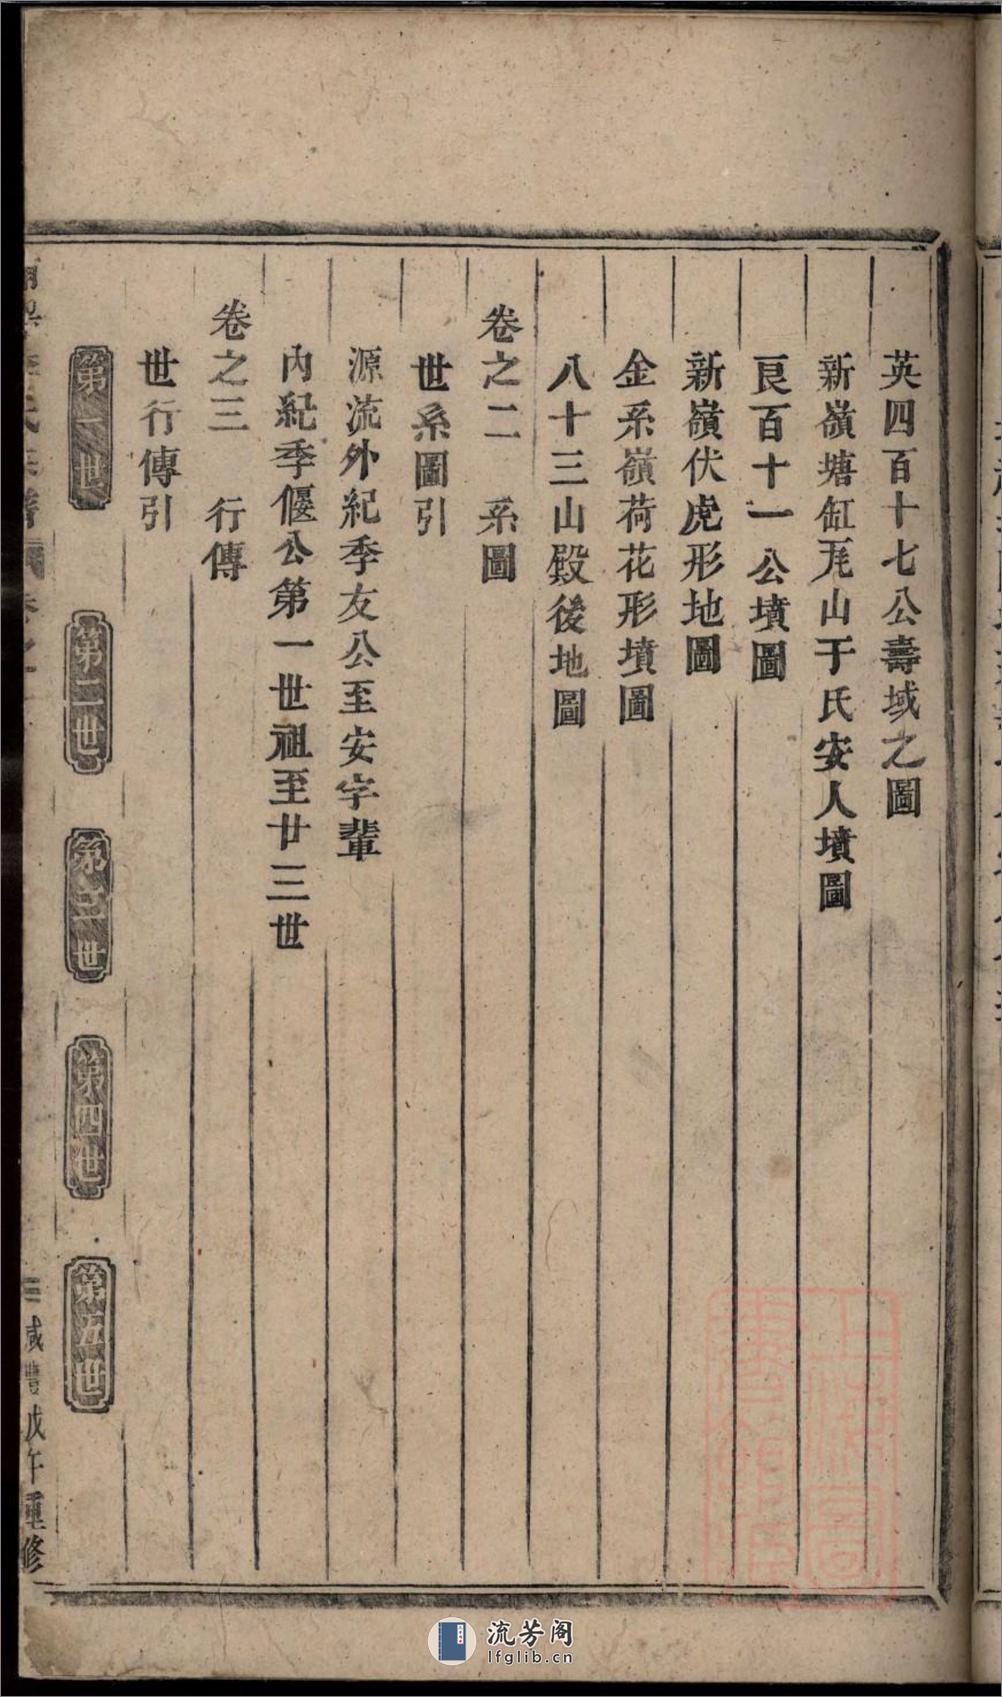 英四百十七公壽域之圖
新嶺塘缸尾山于氏安人墳圖
良百十一公墳圖
新嶺伏虎形地圖
金系嶺荷花形墳圖
八十三山殿後地圖
卷之二 系圖
世系圖引
源流外紀季友公至安字輩
內紀季偃公第一世祖至廿三世
卷之三 行傳
世行傳引
第一世 第二世 第三世 第四世 第五世
氏 譜 卷之
咸豐戊午重修
流芳阁
lfglib.cn